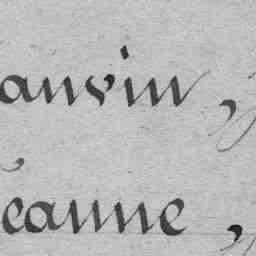 auvin,
eanne,